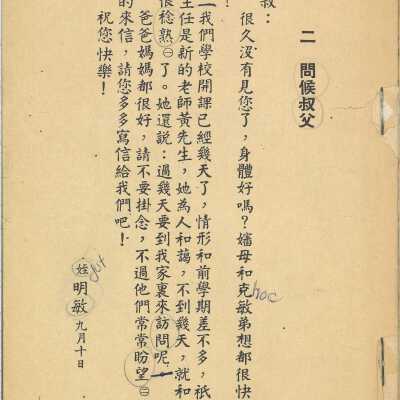 二　問候叔父
叔：
很久沒有見您了，身體好嗎？嬸母和克敏弟想都很快
我們學校開課已經幾天了，情形和前學期差不多，祇
主任是新的老師黃先生，她為人和藹，不到幾天，就和
很稔熟㊀了。她還說：過幾天要到我家裏來訪問呢
爸爸媽媽都很好，請不要掛念，不過他們常常盼望㊁
的來信，請您多多寫信給我們吧！
祝您快樂！
姪 明敏 九月十日
hoc